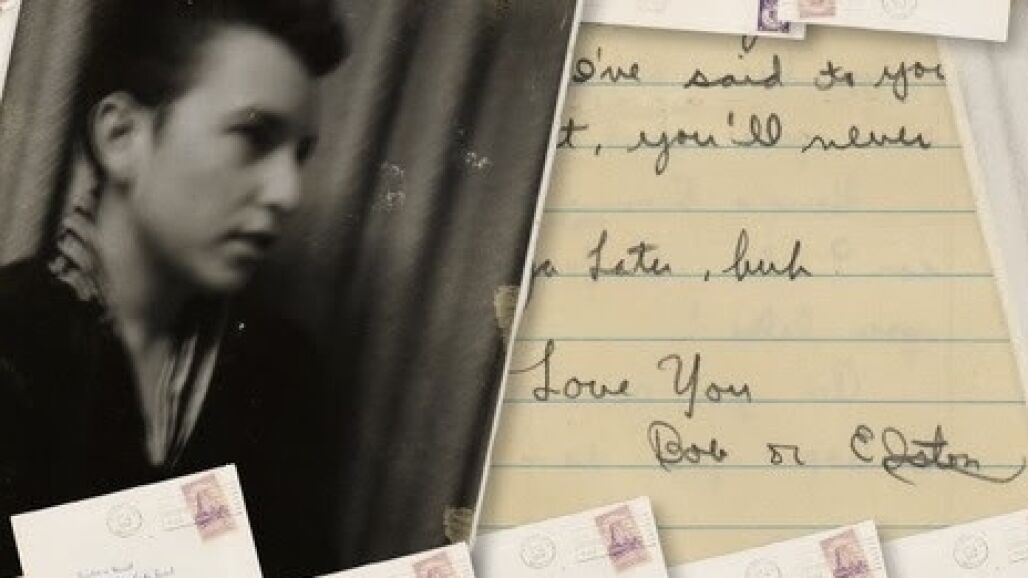 I've said to you
t, you'll never
Later, huh
Love You
Bob or Elston